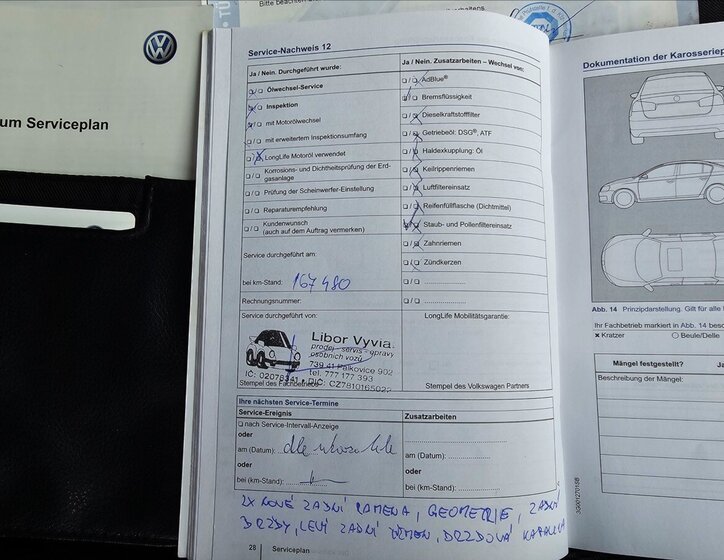 Bitte beachten
um Serviceplan
Service-Nachweis 12
Ja / Nein. Durchgeführt wurde:
Ölwechsel-Service
Inspektion
mit Motorölwechsel
mit erweitertem Inspektionsumfang
LongLife Motoröl verwendet
Korrosions- und Dichtheitsprüfung der Erd-
gasanlage
Prüfung der Scheinwerfer-Einstellung
Reparaturempfehlung
Kundenwunsch
(auch auf dem Auftrag vermerken)
Service durchgeführt am:
bei km-Stand: 167 480
Rechnungsnummer:
Service durchgeführt von:
Libor Vyvia
prodej - servis - opravy
osobních vozů
739 41 Palkovice 902
tel. 777 177 393
IČ: 02078341 DIČ: CZ7810165022
Stempel des Fachbetriebs
Ja / Nein. Zusatzarbeiten – Wechsel von:
AdBlue®
Bremsflüssigkeit
Dieselkraftstofffilter
Getriebeöl: DSG®, ATF
Haldexkupplung: Öl
Keilrippenriemen
Luftfiltereinsatz
Reifenfüllflasche (Dichtmittel)
Staub- und Pollenfiltereinsatz
Zahnriemen
Zündkerzen
LongLife Mobilitätsgarantie:
Stempel des Volkswagen Partners
Ihre nächsten Service-Termine
Service-Ereignis
nach Service-Intervall-Anzeige
oder
am (Datum):
oder
bei (km-Stand):
Zusatzarbeiten
am (Datum):
oder
bei (km-Stand):
2X NOVÉ ZADNÍ RAMENA, GEOMETRIE, ZADNÍ
BRZDY, LEVÝ ZADNÍ TŘMEN, BRZDOVÁ KAPALINA
28 Serviceplan
Dokumentation der Karosseriep
Abb. 14 Prinzipdarstellung. Gilt für alle
Ihr Fachbetrieb markiert in Abb. 14 besc
x Kratzer
Beule/Delle
Mängel festgestellt?
Beschreibung der Mängel: